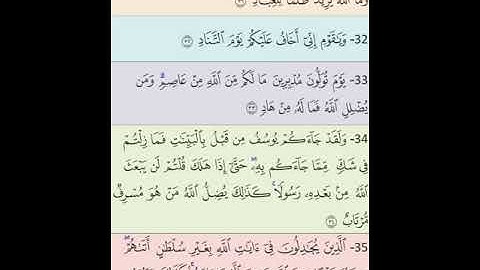 وَمَا ٱللَّهُ يُرِيدُ ظُلْمًا لِّلْعِبَادِ ﴿٣١﴾
32- وَيَٰقَوْمِ إِنِّىٓ أَخَافُ عَلَيْكُمْ يَوْمَ ٱلتَّنَادِ ﴿٣٢﴾
33- يَوْمَ تُوَلُّونَ مُدْبِرِينَ مَا لَكُم مِّنَ ٱللَّهِ مِنْ عَاصِمٍ ۗ وَمَن
يُضْلِلِ ٱللَّهُ فَمَا لَهُۥ مِنْ هَادٍ ﴿٣٣﴾
34- وَلَقَدْ جَآءَكُمْ يُوسُفُ مِن قَبْلُ بِٱلْبَيِّنَٰتِ فَمَا زِلْتُمْ
فِى شَكٍّ مِّمَّا جَآءَكُم بِهِۦ ۖ حَتَّىٰٓ إِذَا هَلَكَ قُلْتُمْ لَن يَبْعَثَ
ٱللَّهُ مِنۢ بَعْدِهِۦ رَسُولًا ۚ كَذَٰلِكَ يُضِلُّ ٱللَّهُ مَنْ هُوَ مُسْرِفٌ
مُّرْتَابٌ ﴿٣٤﴾
35- ٱلَّذِينَ يُجَٰدِلُونَ فِىٓ ءَايَٰتِ ٱللَّهِ بِغَيْرِ سُلْطَٰنٍ أَتَىٰهُمْ ۖ